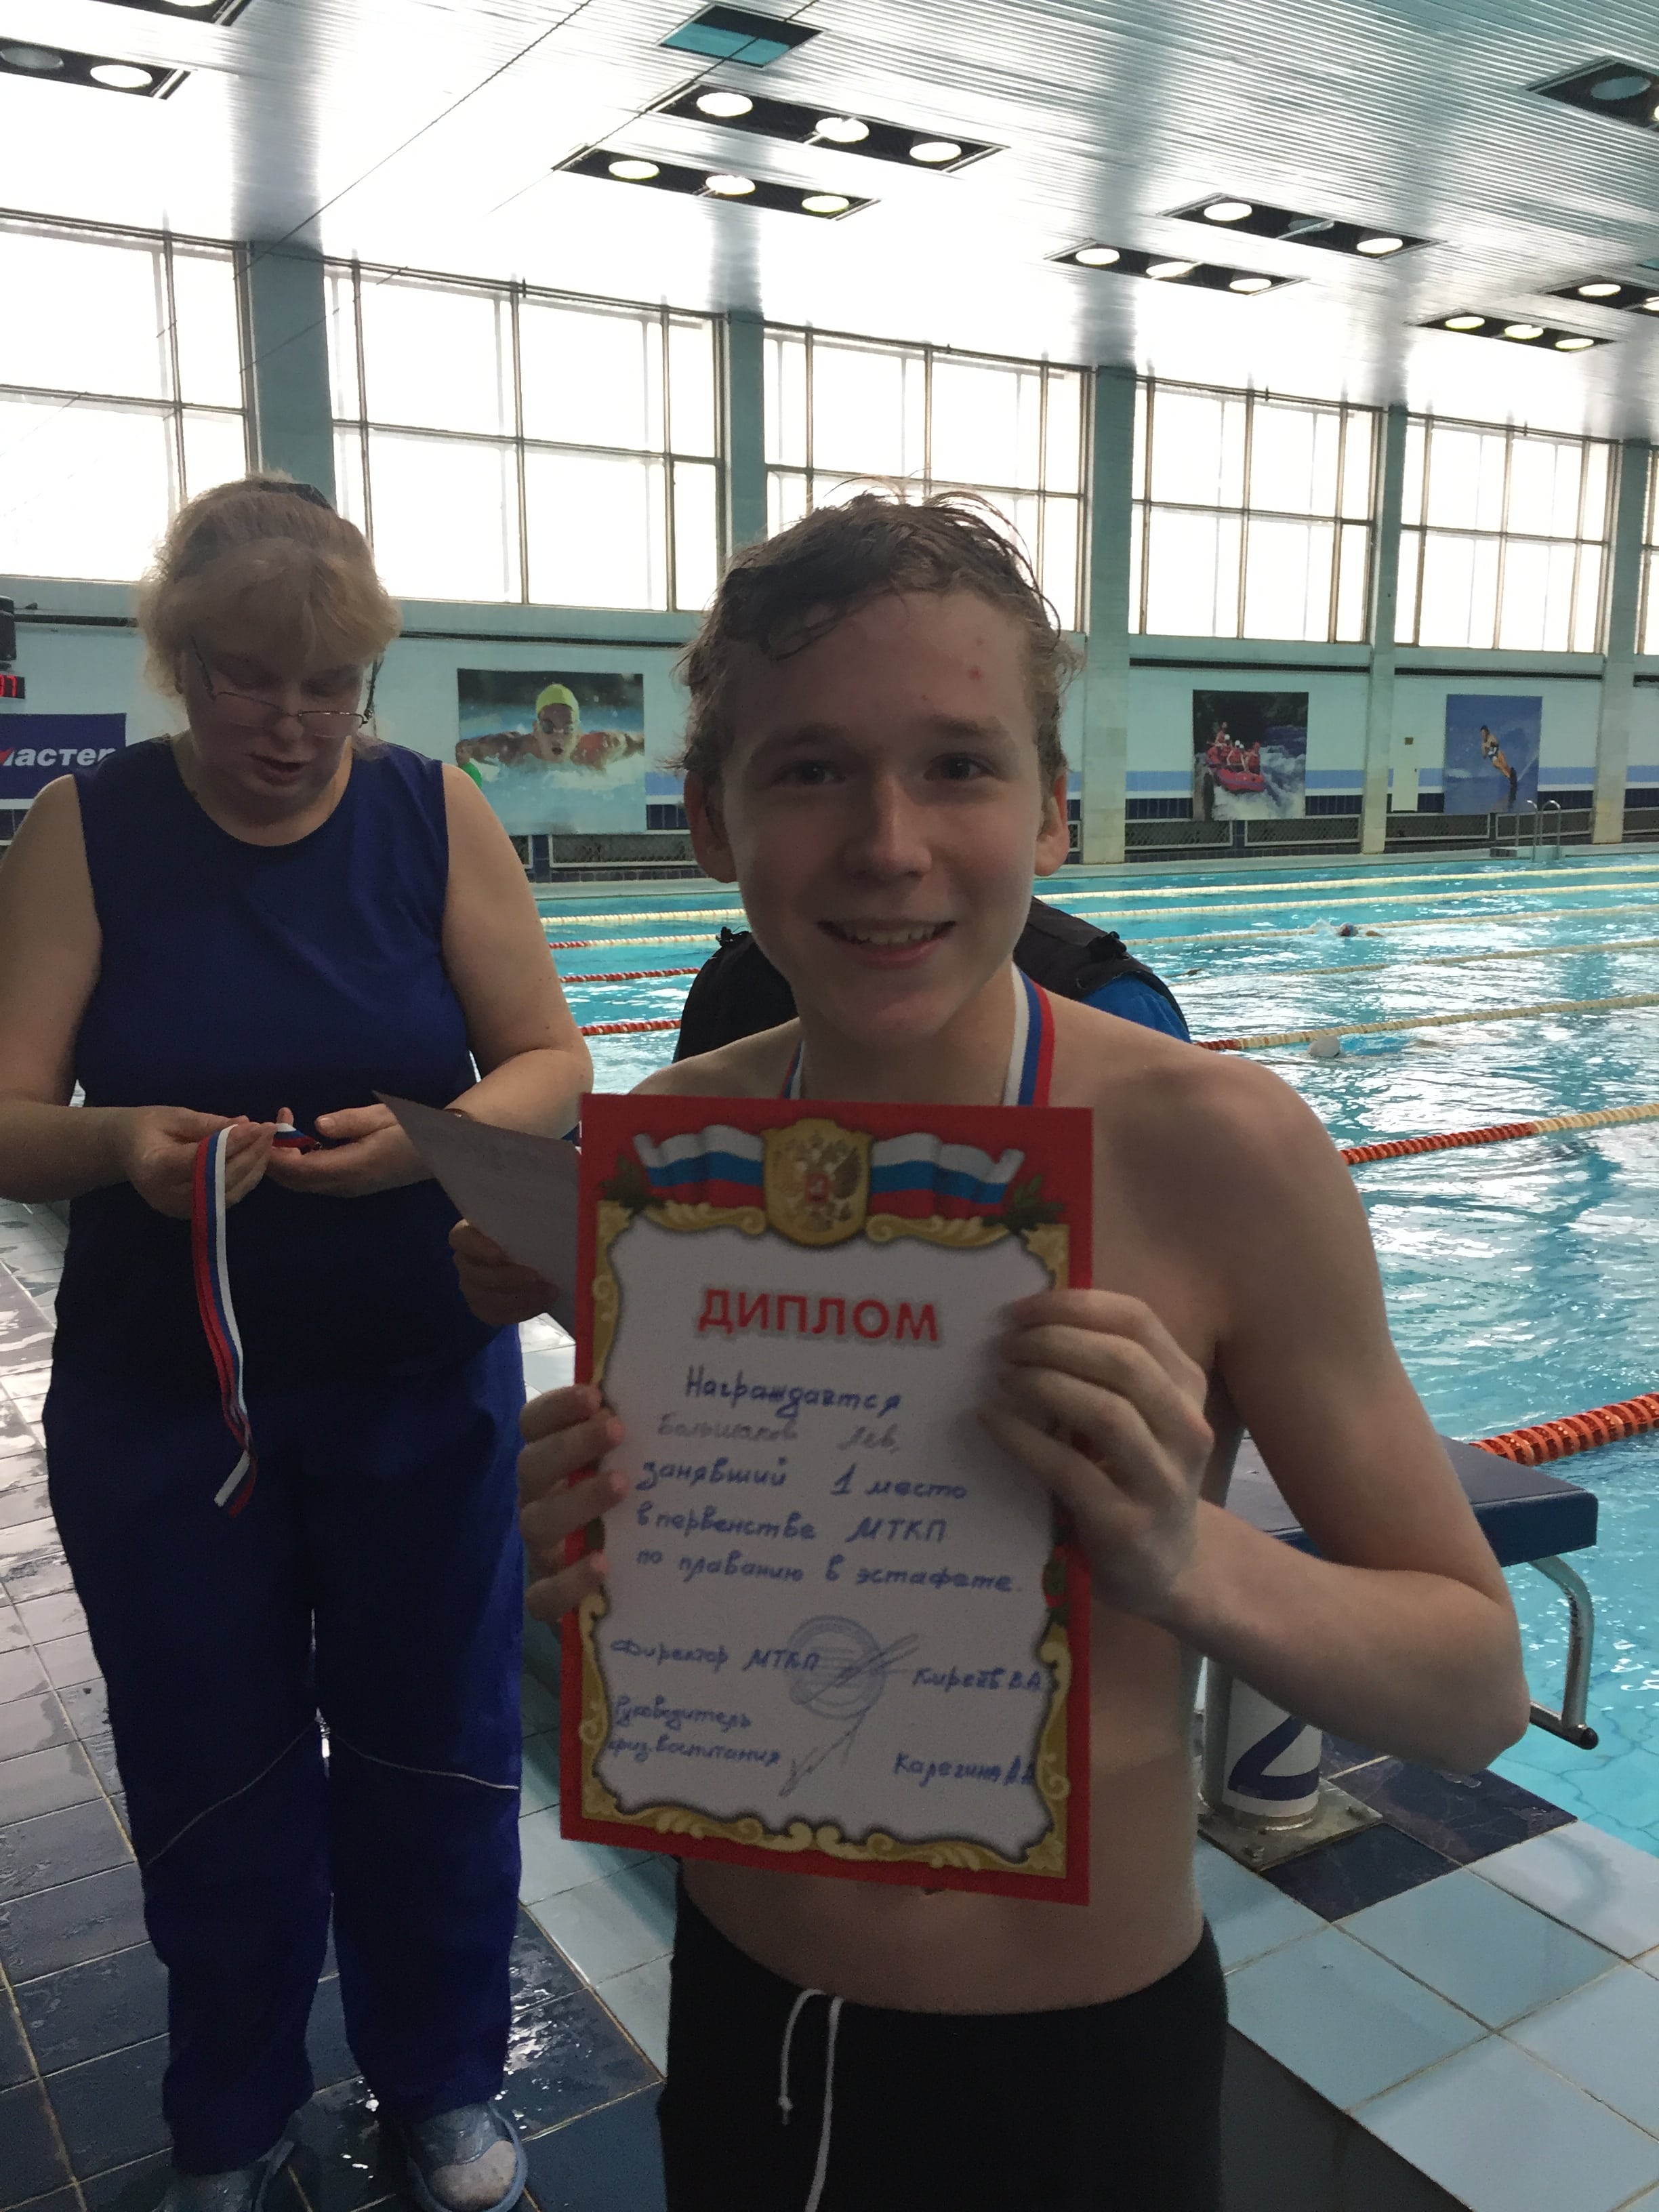 мастер
ДИПЛОМ
Награждается
Большаков Лев,
занявший 1 место
в первенстве МТКП
по плаванию в эстафете.
Директор МТКП Киреев В.А
Руководитель
физ. воспитания Карегина
2